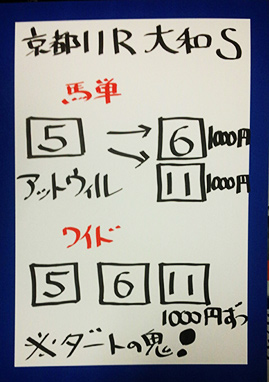 京都11R 大和S
馬単
5 → 6 1000円
→ 11 1000円
アットウィル
ワイド
5 6 11
1000円ずつ
※ダートの鬼!